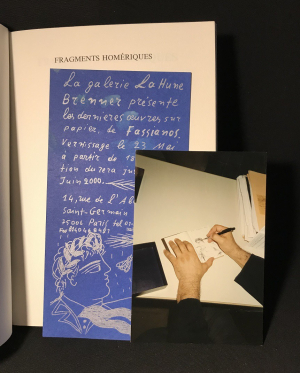 FRAGMENTS HOMÉRIQUES
La galerie La Hune
Brenner présente
les dernières œuvres sur
papier de Fassianos.
Vernissage le 23 Mai
à partir de 18
tion durera
Juin 2000.
14, rue de l'A
Saint-Germain
75006 Paris tel